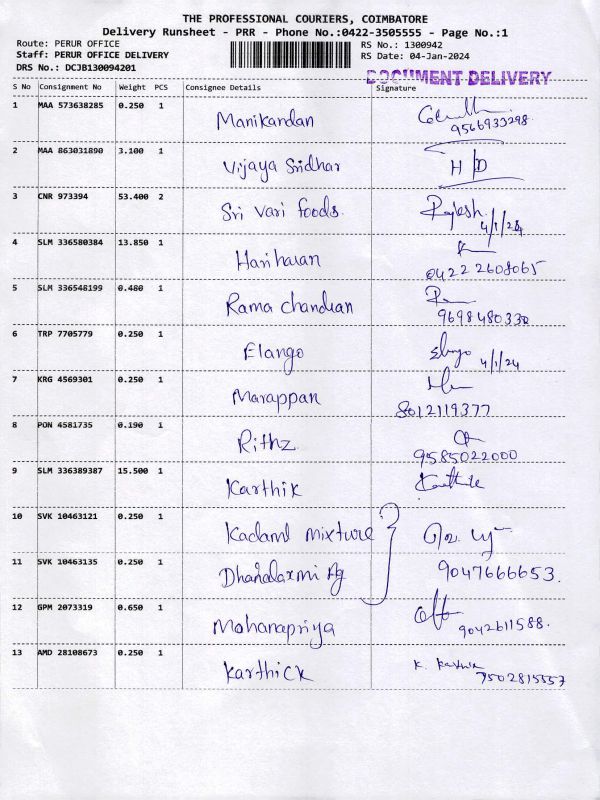 THE PROFESSIONAL COURIERS, COIMBATORE
Delivery Runsheet - PRR - Phone No.:0422-3505555 - Page No.:1
Route: PERUR OFFICE RS No.: 1300942
Staff: PERUR OFFICE DELIVERY RS Date: 04-Jan-2024
DRS No.: DCJB130094201
DOCUMENT DELIVERY
S No Consignment No Weight PCS Consignee Details Signature
1 MAA 573638285 0.250 1 Manikandan
9566933298
2 MAA 863031890 3.100 1 Vijaya Sridhar H D
3 CNR 973394 53.400 2 Sri Vari foods. Rajesh
4/1/24
4 SLM 336580384 13.850 1 Hariharan
0422 2608065
5 SLM 336548199 0.480 1 Rama chandran
9698480330
6 TRP 7705779 0.250 1 Elango 4/1/24
7 KRG 4569301 0.250 1 Marappan
8012119377
8 PON 4581735 0.190 1 Rithz
9585022000
9 SLM 336389387 15.500 1 Karthik
10 SVK 10463121 0.250 1 mixture
11 SVK 10463135 0.250 1 Dhanalaxmi Ag 9047666653.
12 GPM 2073319 0.650 1 Mohanapriya
9042611588.
13 AMD 28108673 0.250 1 Karthick K.
7502815557